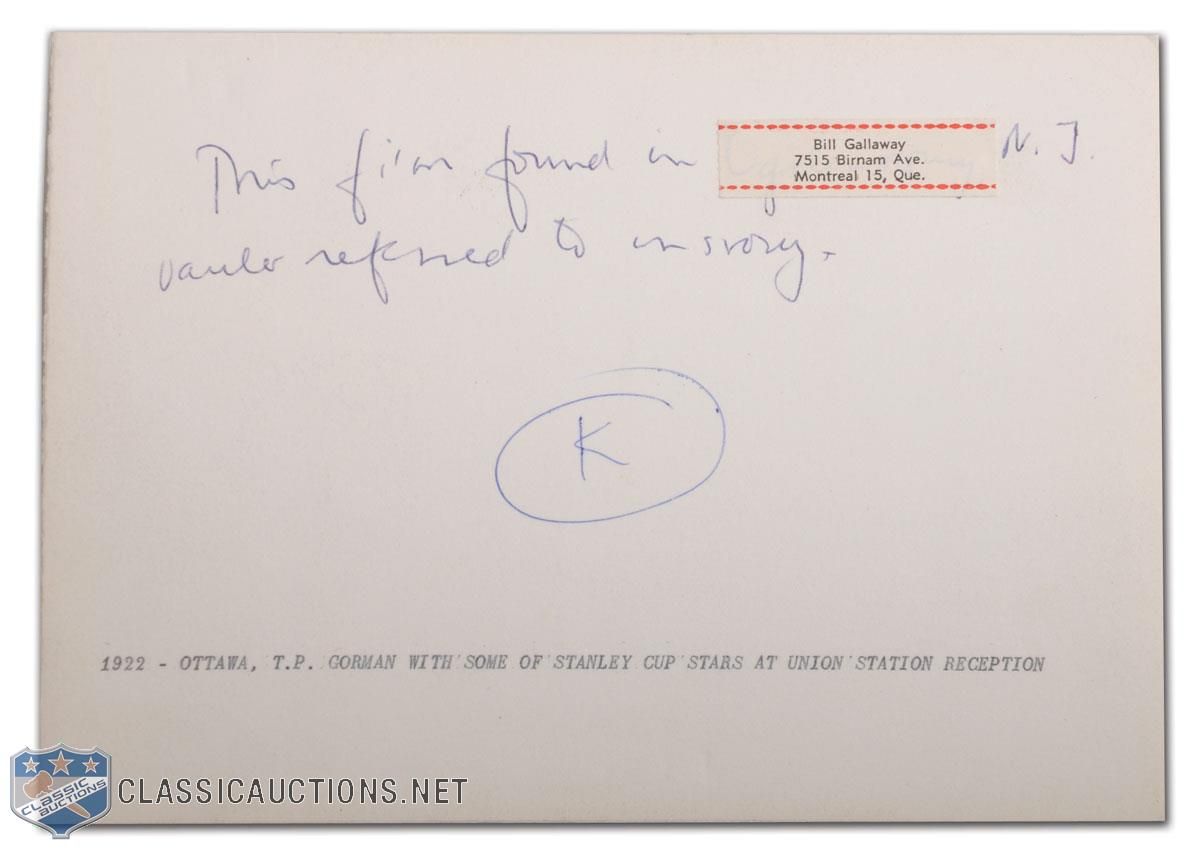 This film found in N. J.
Bill Gallaway
7515 Birnam Ave.
Montreal 15, Que.
vaults referred to in story.
K
1922 - OTTAWA, T.P. GORMAN WITH SOME OF STANLEY CUP STARS AT UNION STATION RECEPTION
CLASSIC AUCTIONS
CLASSICAUCTIONS.NET